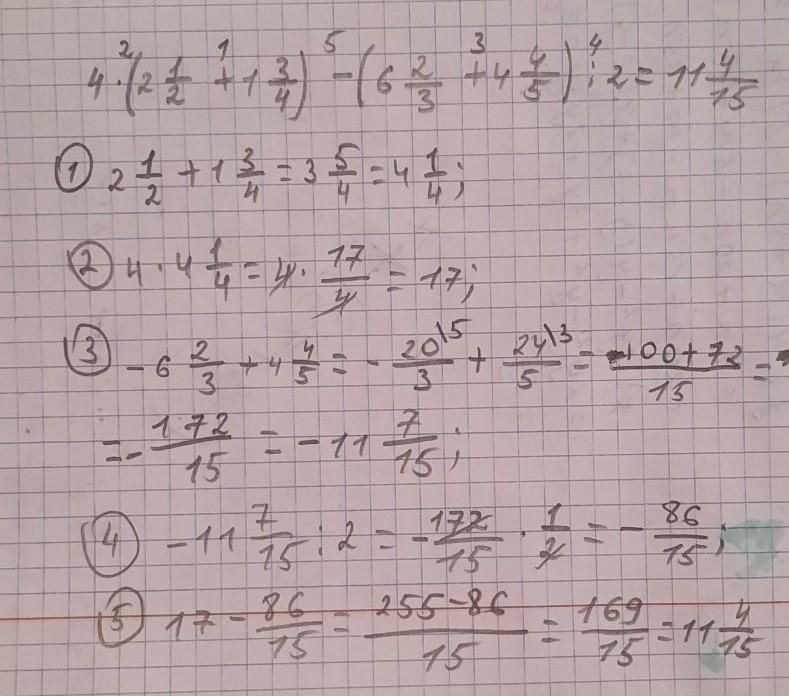 4 · (2 1/2 + 1 3/4) - (6 2/3 + 4 4/5) : 2 = 11 4/15
① 2 1/2 + 1 3/4 = 3 5/4 = 4 1/4;
② 4 · 4 1/4 = 4 · 17/4 = 17;
③ - 6 2/3 + 4 4/5 = - 20\5/3 + 24\3/5 = -100+72/15 =
= - 172/15 = - 11 7/15;
④ - 11 7/15 : 2 = - 172/15 · 1/2 = - 86/15;
⑤ 17 - 86/15 = 255-86/15 = 169/15 = 11 4/15